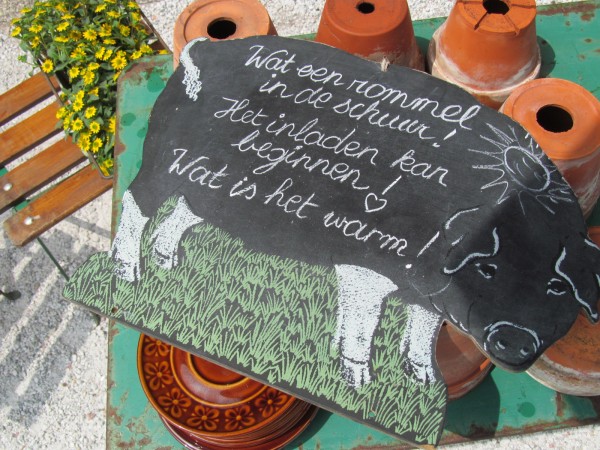 Wat een rommel
in de schuur!
Het inladen kan
beginnen! ♡
Wat is het warm!